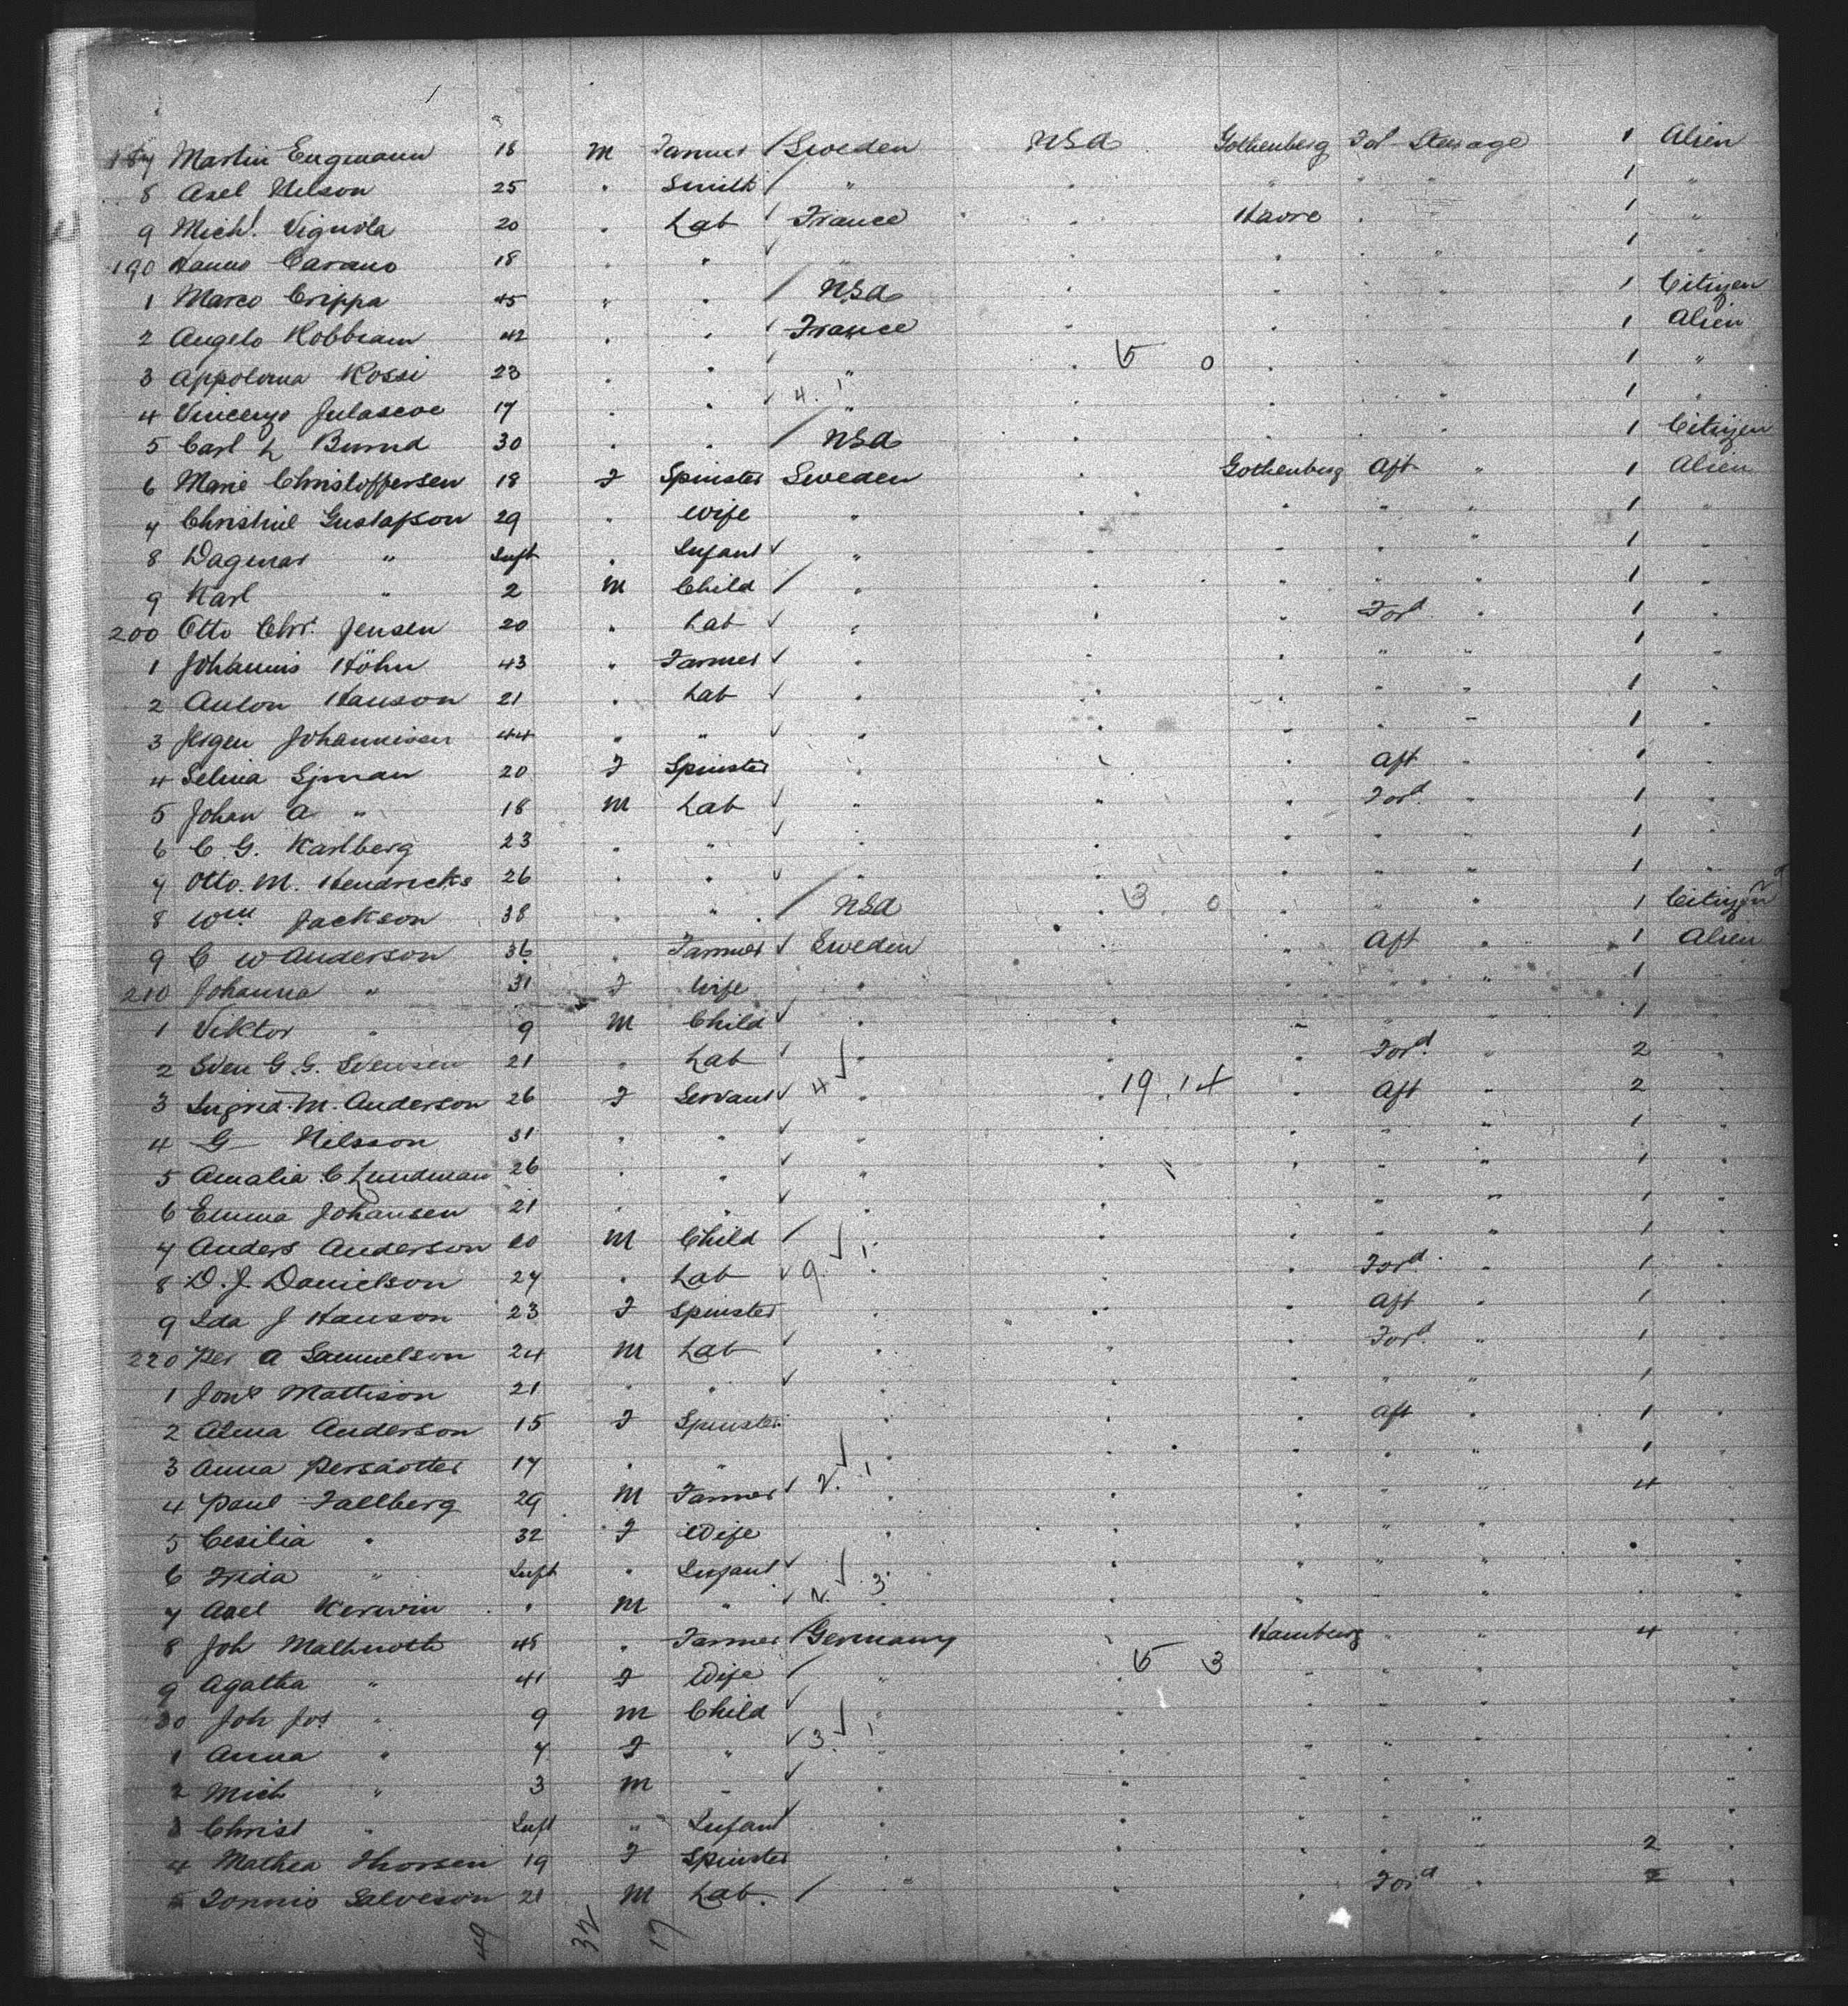 187 Martin Engmann 18 M Farmer / Sweden USA Gothenberg Ford Steerage 1 Alien
8 Axel Nelson 25 " Smith / " " " " " 1 "
9 Michl. Vignola 20 " Lab ✓ France " Havre " " 1 "
190 Carano 18 " " ✓ " " " " " 1 "
1 Marco Crippa 45 " " / USA " " " " 1 Citizen
2 Angelo 42 " " ✓ France " " " " 1 Alien
3 Appolonia Rossi 23 " " ✓ " " 5 0 " " " 1 "
4 Vincenzo 17 " " ✓ 4. 1 " " " " " 1 "
5 Carl L Burnd 30 " " / USA " " " " 1 Citizen
6 Marie Christoffersen 18 F Spinster Sweden " Gothenberg Aft " 1 Alien
7 Christine Gustafson 29 " Wife " " " " " 1 "
8 Dagmar " Inft " Infant ✓ " " " " " 1 "
9 Karl " 2 M Child / " " " " " 1 "
200 Otto Chr. Jensen 20 " Lab ✓ " " " Ford " 1 "
1 Johannis Höhn 43 " Farmer ✓ " " " " " 1 "
2 Anton Hanson 21 " Lab ✓ " " " " " 1 "
3 Jergen Johannissen 44 " " ✓ " " " " " 1 "
4 Selma Sjman 20 F Spinster " " " Aft " 1 "
5 Johan A " 18 M Lab ✓ " " " Ford " 1 "
6 C. G. Karlberg 23 " " ✓ " " " " " 1 "
7 Otto. M. Hendricks 26 " " ✓ " " " " " 1 "
8 Wm Jackson 38 " " / USA " 3 0 " " " 1 Citizen
9 C W Anderson 36 " Farmer ✓ Sweden " " Aft " 1 Alien
210 Johanna " 31 F Wife " " " " " 1 "
1 Viktor " 9 M Child ✓ " " " " " 1 "
2 Sven G. G. Svensen 21 " Lab ✓ " " " Ford " 2 "
3 Ingrid. M. Anderson 26 F Servant ✓ 4 " " 19.14 " Aft " 2 "
4 G Nilsson 31 " " ✓ " " " " " 1 "
5 Amalia C. Lundman 26 " " ✓ " " " " " 1 "
6 Emma Johansen 21 " " ✓ " " " " " 1 "
7 Anders Anderson 10 M Child / 1 " " " " " 1 "
8 D. J. Danielson 27 " Lab ✓ 9 " " " Ford " 1 "
9 Ida J Hanson 23 F Spinster " " " Aft " 1 "
220 Per A Samuelson 24 M Lab ✓ " " " Ford " 1 "
1 Jons Mattison 21 " " ✓ " " " " " 1 "
2 Alma Anderson 15 F Spinster " " " Aft " 1 "
3 Anna Persdotter 17 " " " " " " " 1 "
4 Paul Fallberg 29 M Farmer ✓ 2. 1 " " " " " 4
5 Cesilia " 32 F Wife " " " " " "
6 Frida " Inft " Infant ✓ " " " " " "
7 Axel Kerwin " M " ✓ 2. 3 " " " " " "
8 Joh Malhnoth 45 " Farmer / Germany " Hamburg " " 4 "
9 Agatha " 41 F Wife / " " 5 3 " " " "
30 Joh Jos " 9 M Child ✓ " " " " " "
1 Anna " 7 F " ✓ 3. 1 " " " " " "
2 Mich " 3 M " ✓ " " " " " "
3 Christ " Inft " Infant ✓ " " " " " "
4 Mathea Thorsen 19 F Spinster " " " " " 2 "
5 Tonnis Salveson 21 M Lab. / " " " Ford " 2 "
49 32 17